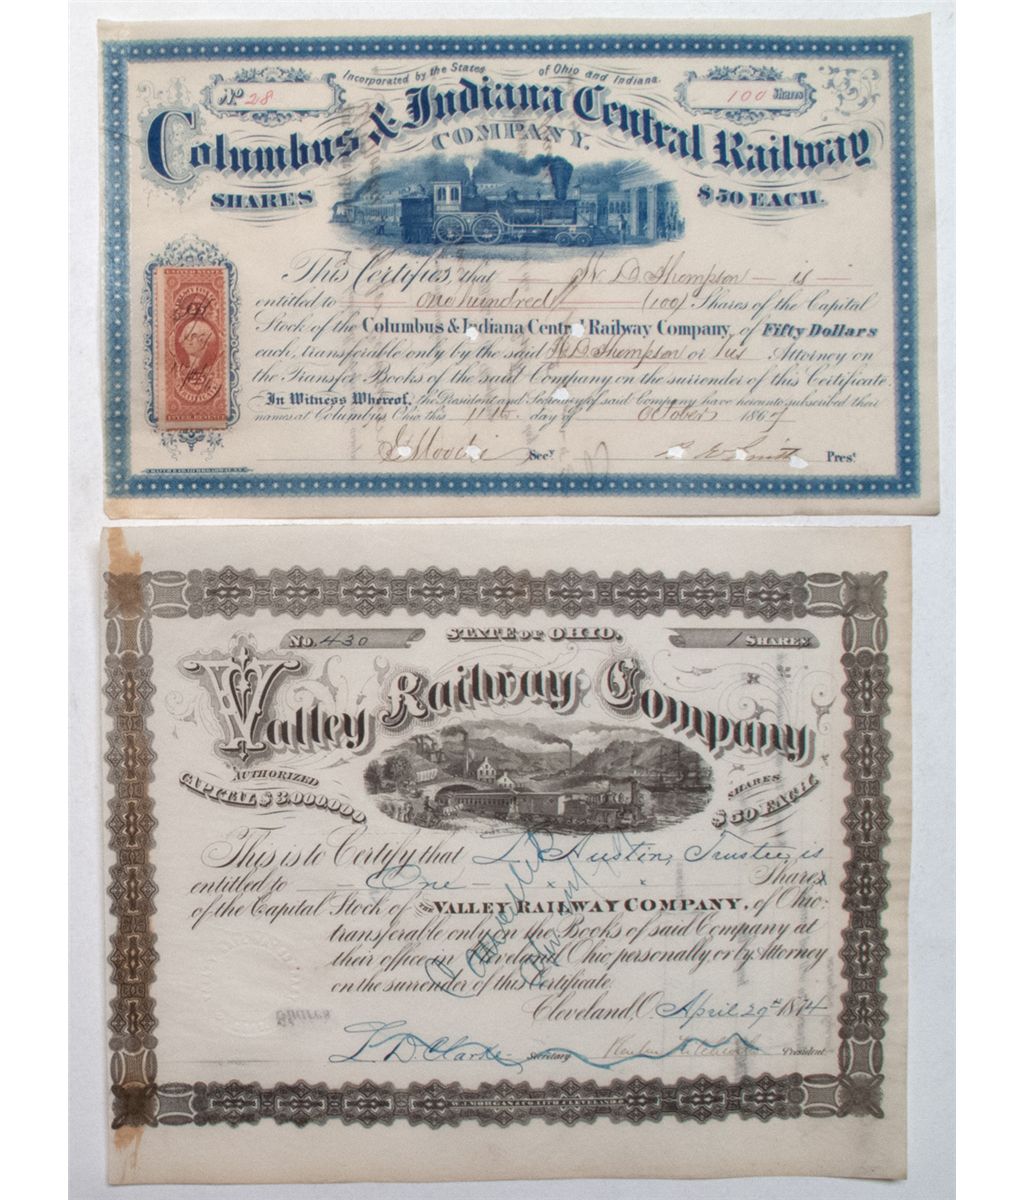 Incorporated by the States of Ohio and Indiana.
No 28
100 Shares
Columbus & Indiana Central Railway
COMPANY.
SHARES
$50 EACH.
This Certifies, that W D Thompson is
entitled to one hundred (100) Shares of the Capital
Stock of the Columbus & Indiana Central Railway Company, of Fifty Dollars
each, transferable only by the said W D Thompson or his Attorney on
the Transfer Books of the said Company on the surrender of this Certificate.
In Witness Whereof, the President and Secretary of said Company have hereunto subscribed their
names at Columbus Ohio this 11th day of October 1867
J Moodie Secy
B E Smith Prest
No. 430
STATE OF OHIO.
1 SHARES
Valley Railway Company
AUTHORIZED
CAPITAL $3,000,000
SHARES
$50 EACH.
This is to Certify that L Austin, Trustee, is
entitled to One x x Shares
of the Capital Stock of THE VALLEY RAILWAY COMPANY, of Ohio:
transferable only on the Books of said Company at
their office in Cleveland Ohio personally or by Attorney
on the surrender of this Certificate.
Cancelled
Cleveland, O. April 29th 1874
L D Clarke Secretary
President
W.J. MORGAN & CO. LITH. CLEVELAND, O.
Shares